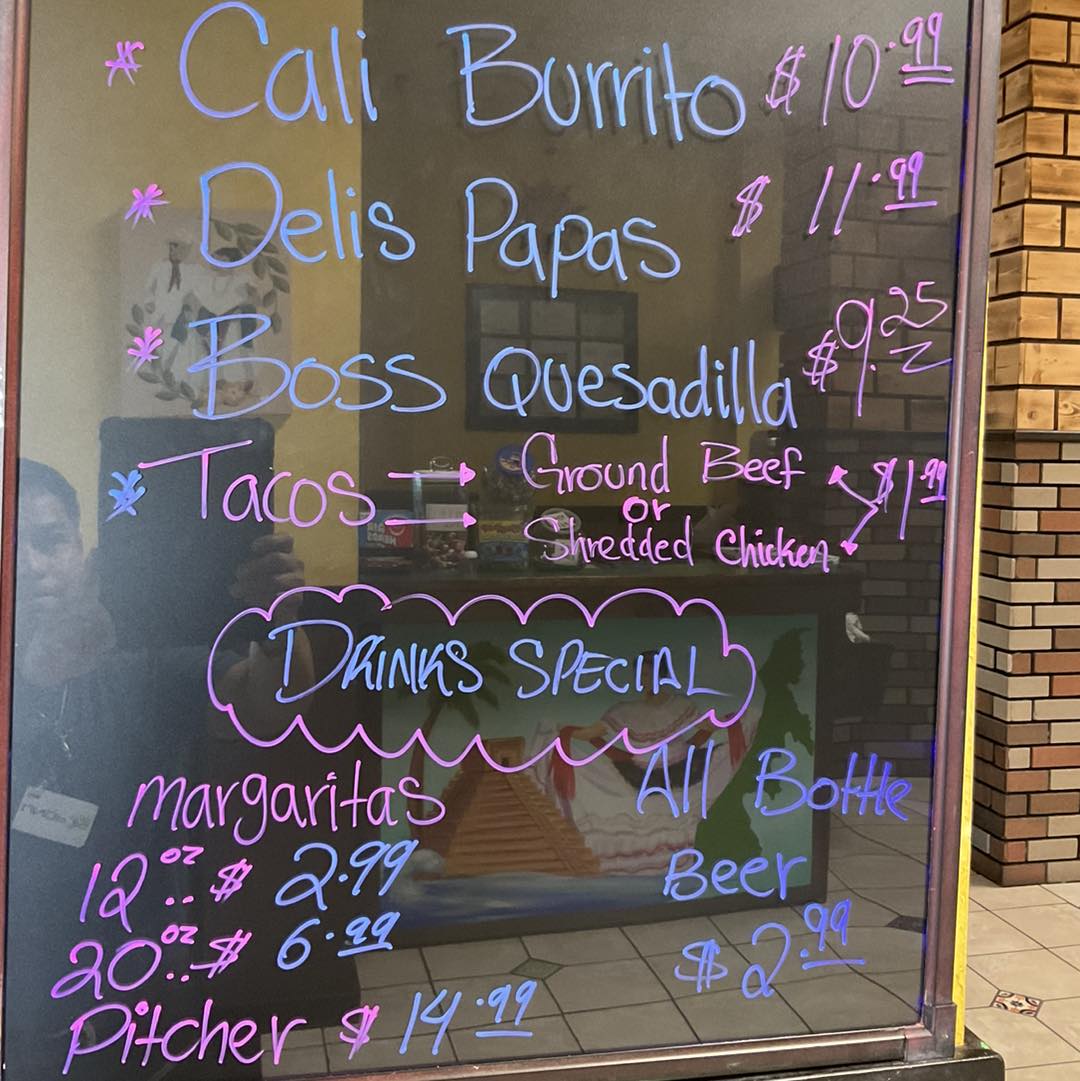 * Cali Burrito $10.99
* Delis Papas $ 11.99
* Boss Quesadilla $9.25
* Tacos → Ground Beef $1.99
or
→ Shredded Chicken
DRINKS SPECIAL
margaritas
12 oz.. $ 2.99
20 oz.. $ 6.99
Pitcher $ 14.99
All Bottle
Beer
$2.99